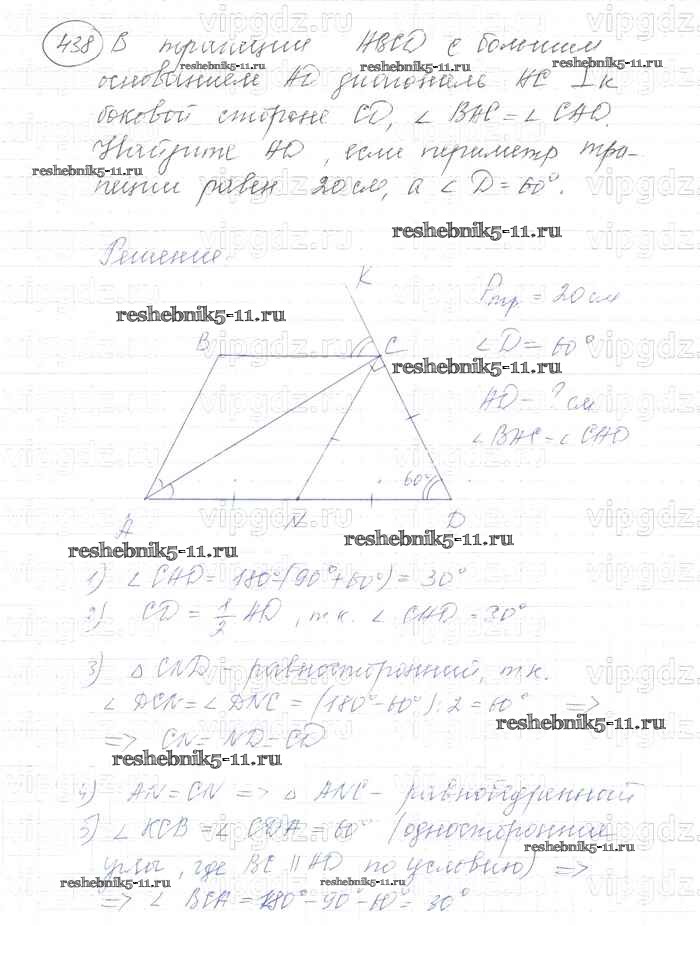 438 В трапеции ABCD с большим
основанием AD диагональ AC ⊥ к
боковой стороне CD, ∠ BAC = ∠ CAD.
Найдите AD, если периметр тра-
пеции равен 20 см, а ∠ D = 60°.
reshebnik5-11.ru
Решение
K
Pтр. = 20 см
B
C
∠ D = 60°
AD - ? см
∠ BAC = ∠ CAD
60°
A
N
D
1) ∠ CAD = 180° - (90° + 60°) = 30°
2) CD = 1/2 AD, т.к. ∠ CAD = 30°
3) △ CND - равносторонний, т.к.
∠ DCN = ∠ DNC = (180° - 60°) : 2 = 60° =>
=> CN = ND = CD
4) AN = CN => △ ANC - равнобедренный
5) ∠ KCB = ∠ CDA = 60° (односторонние
углы, где BC || AD по условию) =>
=> ∠ BCA = 180° - 90 - 60° = 30°
vipgdz.ru